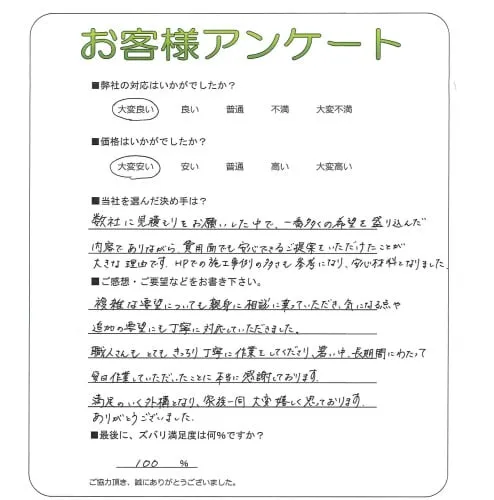 お客様アンケート
■弊社の対応はいかがでしたか？
大変良い 良い 普通 不満 大変不満
■価格はいかがでしたか？
大変安い 安い 普通 高い 大変高い
■当社を選んだ決め手は？
数社に見積もりをお願いした中で、一番多くの希望を盛り込んだ
内容でありながら、費用面でも安心できるご提案をいただけたことが
大きな理由です。HPでの施工事例の多さも参考になり、安心材料となりました。
■ご感想・ご要望などをお書き下さい。
複雑な要望についても親身に相談に乗っていただき、気になる点や
追加の要望にも丁寧に対応していただきました。
職人さんもとてもきっちり丁寧に作業をしてくださり、暑い中、長期間にわたって
毎日作業していただいたことに本当に感謝しております。
満足のいく外構となり、家族一同大変嬉しく思っております。
ありがとうございました。
■最後に、ズバリ満足度は何％ですか？
100 ％
ご協力頂き、誠にありがとうございました。